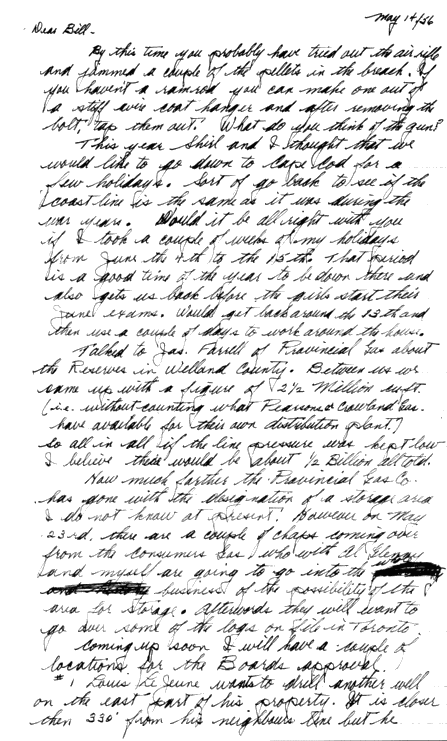 May 14/56
Dear Bill -
By this time you probably have tried out the air rifle
and jammed a couple of the pellets in the breach. If
you haven't a ramrod you can make one out of
a stiff wire coat hanger and after removing the
bolt, tap them out. What do you think of the gun?
This year Shirl and I thought that we
would like to go down to Cape Cod for a
few holidays. Sort of go back to see if the
coast line is the same as it was during the
war years. Would it be all right with you
if I took a couple of weeks of my holidays
from June the 4th to the 15th. That period
is a good time of the year to be down there and
also gets us back before the girls start their
June exams. Would get back around the 13th and
then use a couple of days to work around the house.
Talked to Jas. Farrell of Provincial Gas about
the Reserves in Welland County. Between us we
came up with a figure of 2 1/2 Million cu ft.
(i.e. without counting what Pearson & Crowland Gas.
have available for their own distribution plant.)
So all in all if the line pressure was kept low
I believe there would be about 1/2 Billion all total.
How much farther the Provincial Gas Co.
has gone with the designation of a storage area
I do not know at present. However on May
23rd, there are a couple of chaps coming over
from the Consumers Gas, who with Al
(and myself are going to go into the
business) of the possibility of the
area for storage. Afterwords they will want to
go over some of the logs on file in Toronto.
Coming up soon I will have a couple of
locations for the Boards approval.
#1 Louis LeJeune wants to drill another well
on the east part of his property. It is closer
then 330' from his neighbours line but he